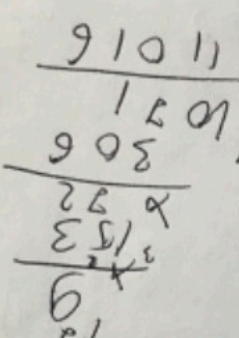 x 9
153
x 72
306
1071
11016